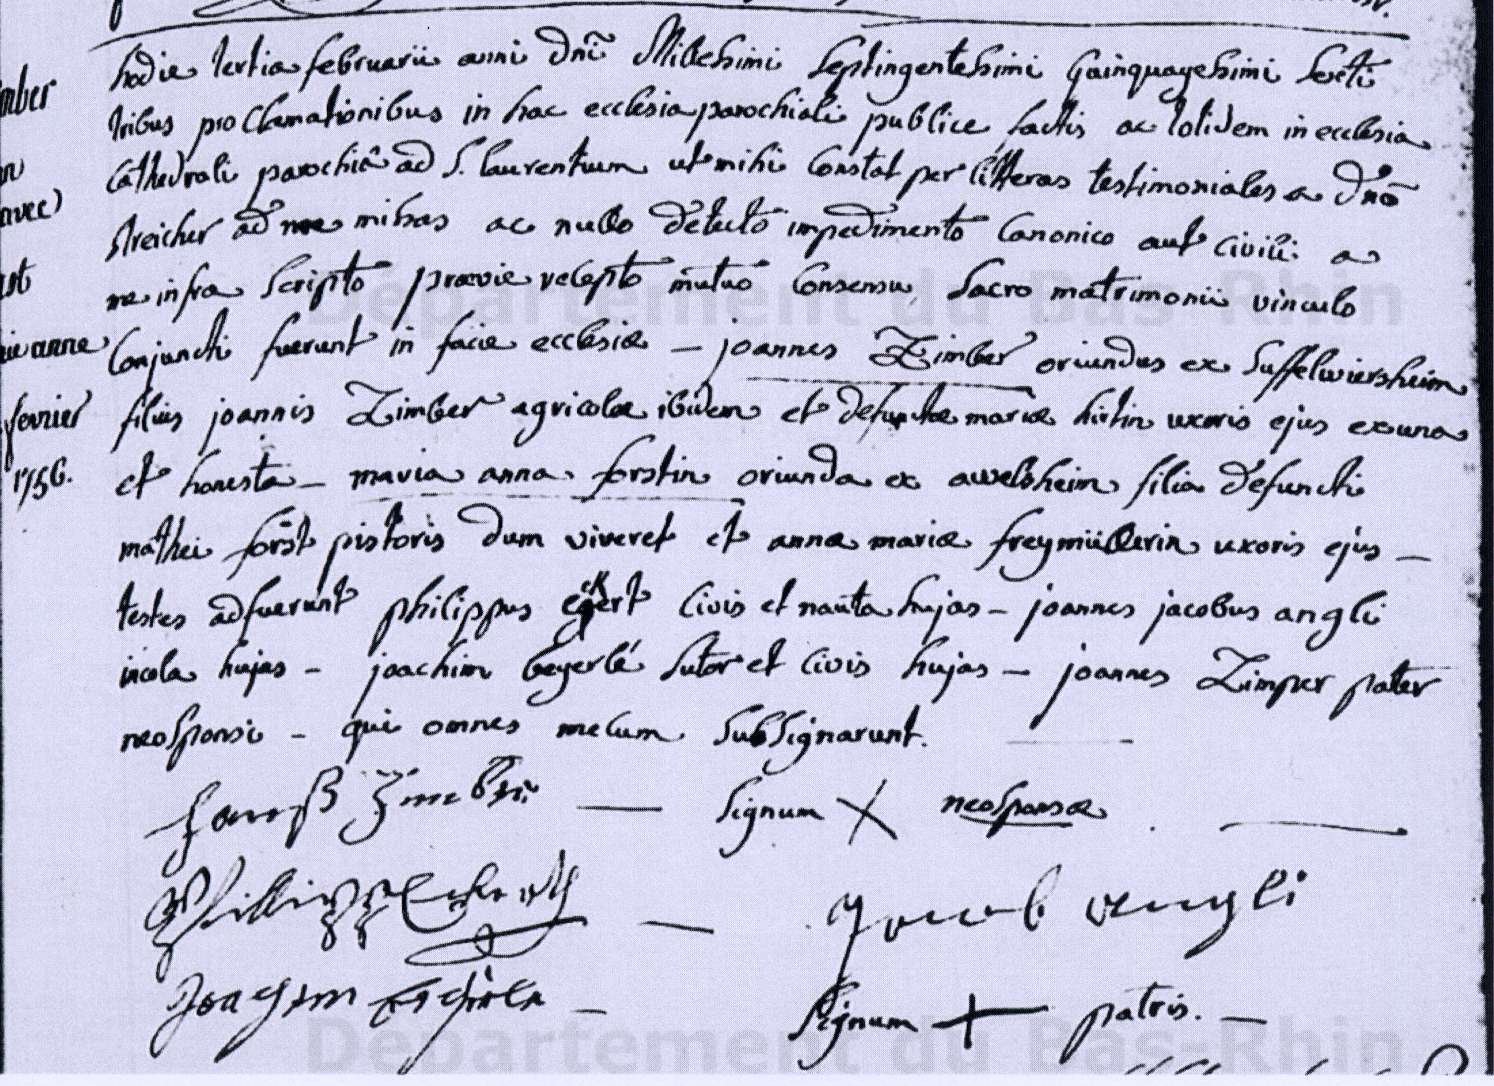 hodie tertia februarii anni Dni Millesimi Septingentesimi Quinquagesimi Sexti
tribus proclamationibus in hac ecclesia parochiali publice factis ac totidem in ecclesia
Cathedrali parochiâ ad S. laurentium ut mihi Constat per litteras testimoniales a Dno
streicher ad me missas ac nullo detecto impedimento Canonico aut civili a
me infra Scripto prævie recepto mutuo Consensu Sacro matrimonii vinculo
Conjuncti fuerunt in facie ecclesiæ – joannes Zimber oriundus ex Suffelwiersheim
filius joannis Zimber agricolæ ibidem et defunctæ mariæ hirtin uxoris ejus ex una
et honesta – maria anna forstin oriunda ex awelsheim filia defuncti
mathei forst pistoris dum viveret et annæ mariæ freymüllerin uxoris ejus –
testes adfuerunt philippus eckert Civis et nauta hujas – joannes jacobus angli
incola hujas – joachim beyerlé Sutor et Civis hujas – joannes Zimper pater
neosponsi – qui omnes mecum Subsignarunt.
Signum X neosponsæ
Jacob angli
Joachim
Signum + patris. –
mber
avec
anne
fevrier
1756.
Département du Bas-Rhin
Département du Bas-Rhin